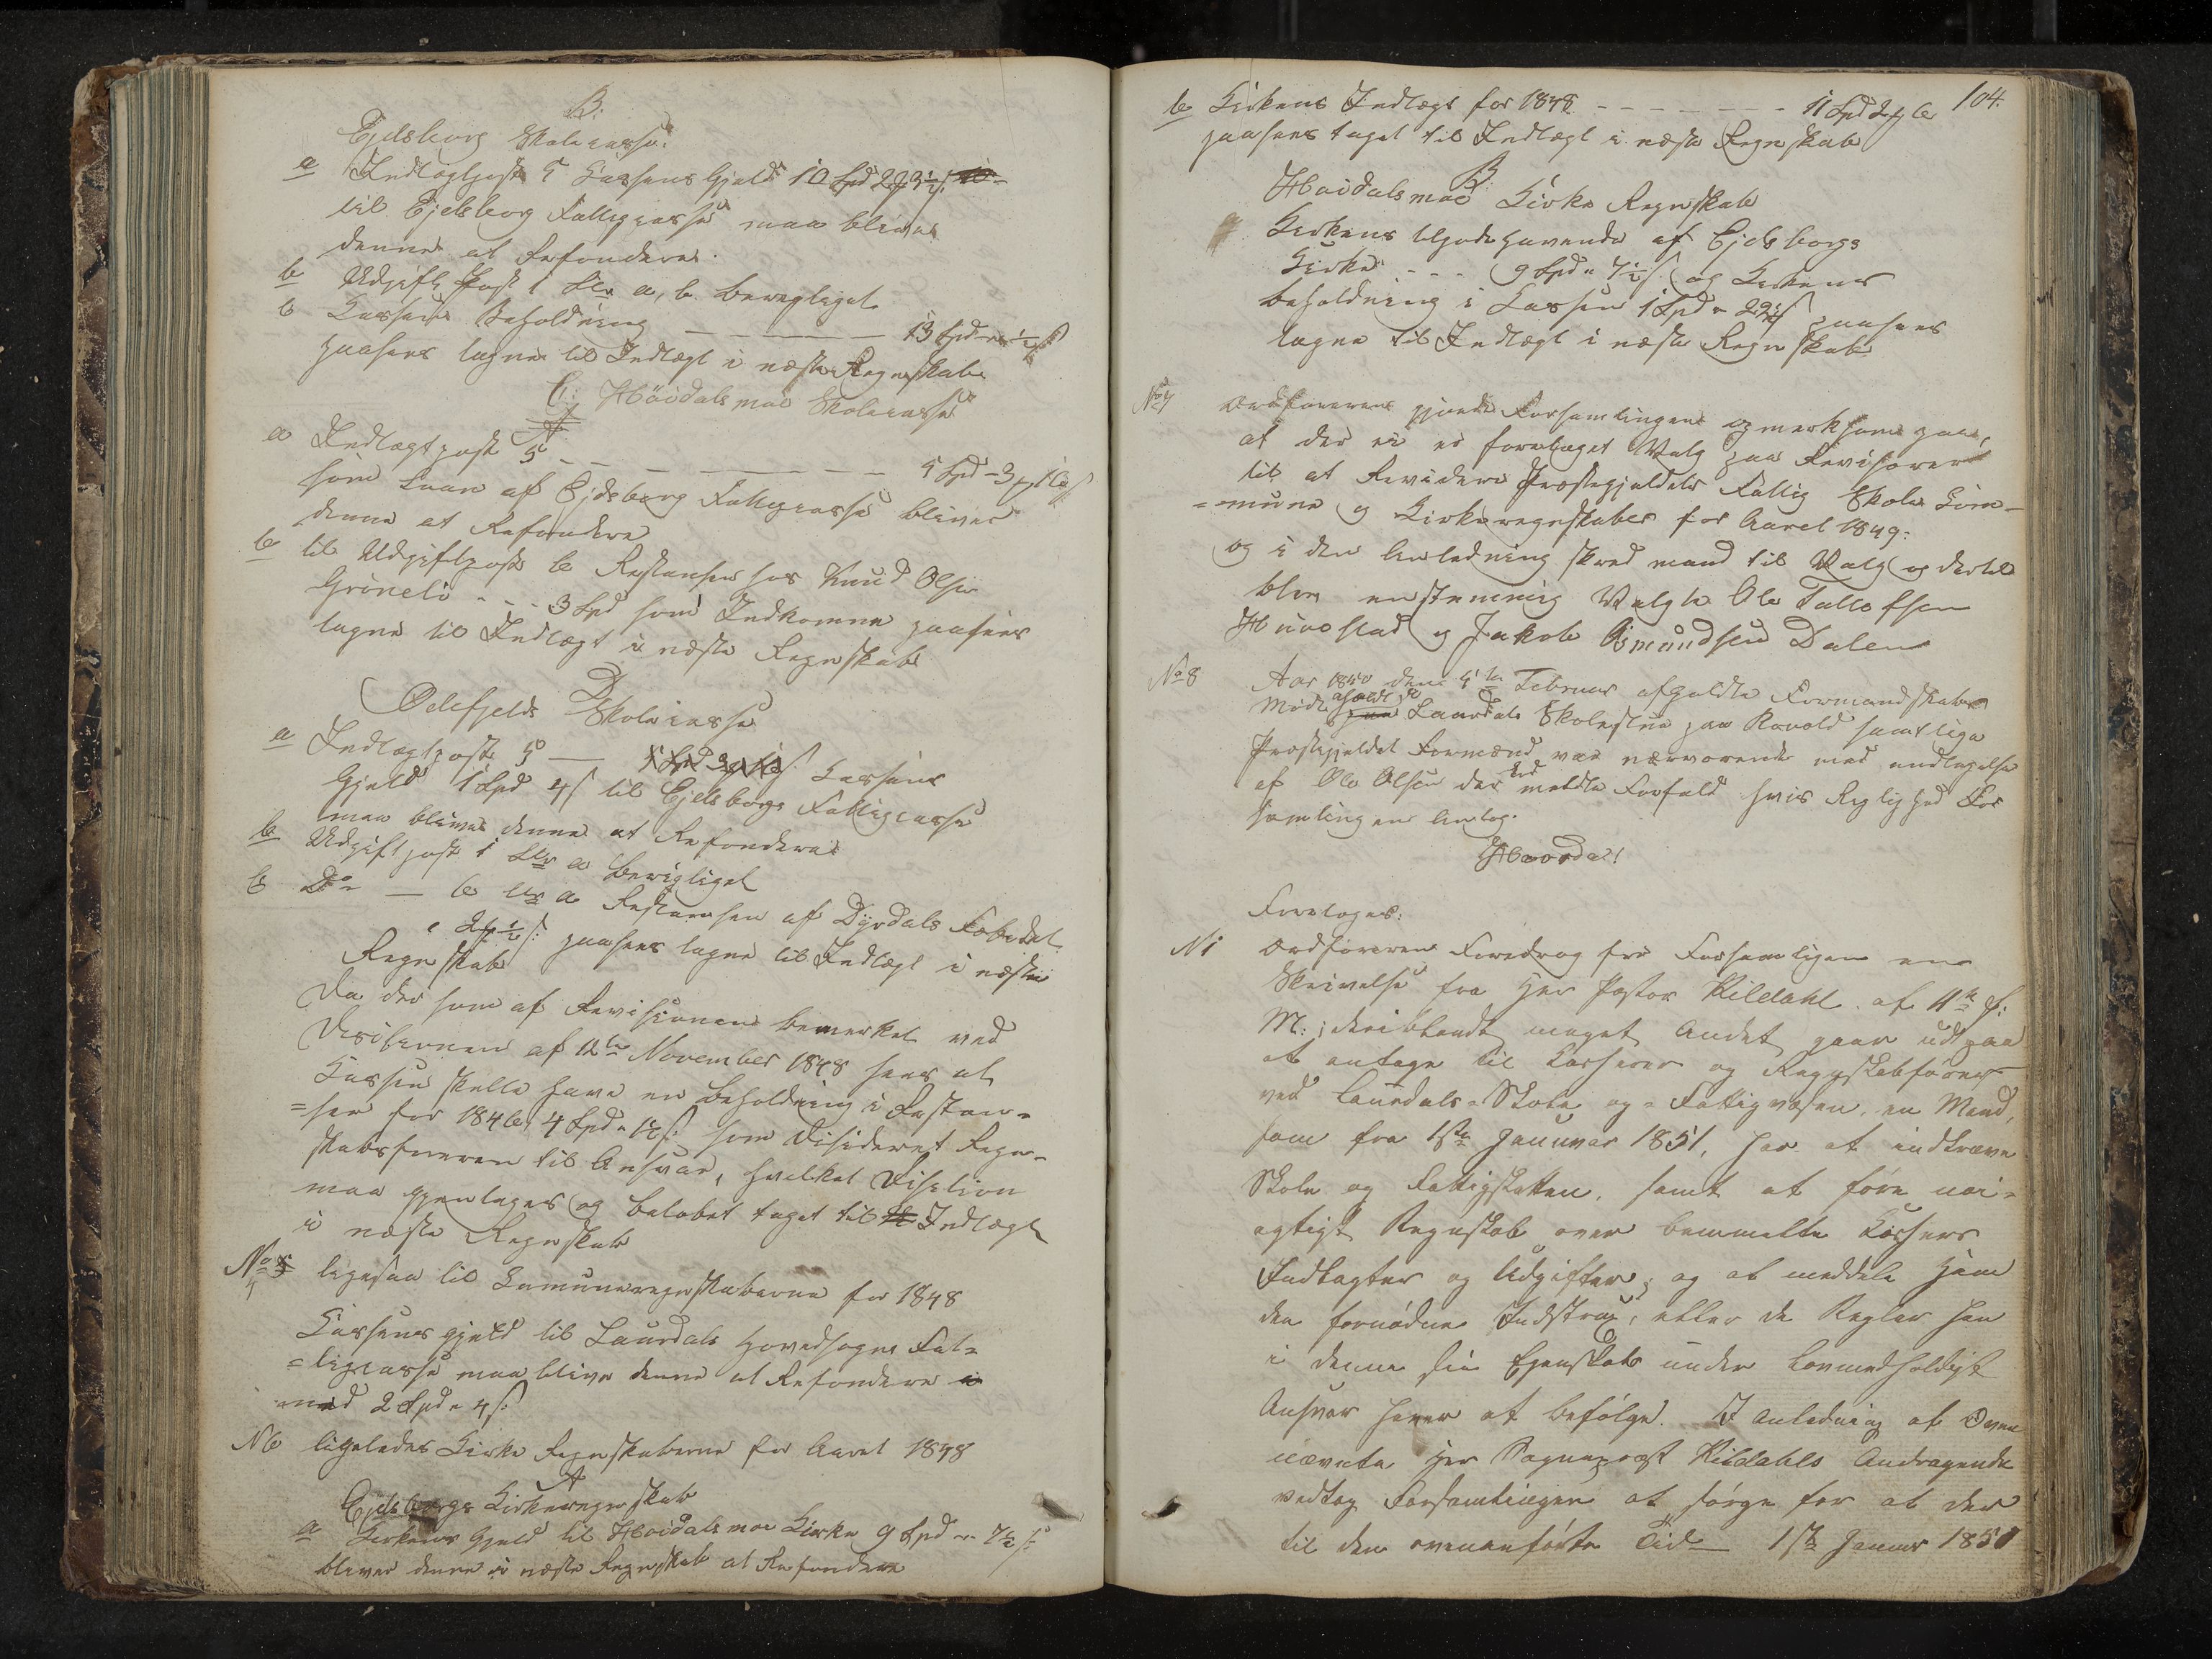 B:
Ejdsborg Skolecasse:
a Indtægtpost 5 Cassens Gjeld 10 Spd 2 ₰ 9½ s.
til Ejdsborg Fattigcasse maa bliver
denne at Refondere.
b Udgift Post 1 Ltr a, b. berigtiget
c Cassens Beholdning — — — 13 Spd
paasees tagne til Indtægt i næste Regnskab
C: Høidalsmoe Skolecasse
a Indtægtpost 5 — — — 5 Spd - 3 ₰ 16 s
som Laan af Ejdsborg Fattigcasse bliver
denne at Refondere
b til Udgiftpost b Restansen hos Knud Olsen
Grineli - - - 3 Spd som Indkomne paasees
tagne til Indtægt i næste Regnskab
D
Ødefjelds Skolecasse
a Indtægtpost 5 — Cassens
Gjeld 1 Spd 4 s til Ejdsborgs Fattigcasse
maa bliver denne at Refondere
b Udgift post 1 Ltr a Berigtiget
c Do — b Ltr a Restansen af Dyrdals
2 ₰ ½ s: paasees tagne til Indtægt i næste
Regnskab
Da der som af Revisionen bemerket ved
Desisionen af 12te November 1848 sees at
Cassen skulle have en beholdning i Restan-
=sen for 1846 4 Spd " 12 s: som Desideret Regn-
skabsføreren til Ansvar, hvilket Desetion
maa gjentages og beløbet taget til Indtægt
i næste Regnskab
No 5 ligesaa til Comuneregnskaberne for 1848
Cassens gjeld til Laurdals Hovedsogns Fat-
=tigcasse maa blive denne at Refondere
med 2 Spd " 4 s:
N6 ligeledes Kirke Regnskaberne for Aaret 1848
A
Ejdsborgs Kirkeregnskab
a Kirkens Gjeld til Høidalsmoe Kirke 9 Spd " 7½ s:
bliver denne i næste Regnskab at Refondere
104.
b Kirkens Indtægt for 1848 - - - - - - 11 Spd 2 ₰ 6
paasees taget til Indtægt i næste Regnskab
B:
Høidalsmoe Kirke Regnskab
a Kirkens tilgodehavende af Ejdsborgs
Kirke - - - 9 Spd " 7½ s. og Kirkens
beholdning i Cassen 1 Spd " 22½ s paasees
tagne til Indtægt i næste Regnskab
No 7 Ordføreren gjorde Forsamlingen opmerksom paa,
at der ei er foretaget Valg paa Revisorer
til at Revidere Præstegjeldets Fattig Skole Com-
=mune og Kirkeregnskaber for Aaret 1849:
og i den Anledning skred mand til Valg og dertil
blev enstemmig Valgte Ole Tallefsen
Huvestad og Jakob Amundsen Dalen
No 8 Aar 1850 den 4de Februar afholdte Formandskabet
Møde Laurdals Skolestue paa Ravold samtlige
Præstegjeldet Formænd var nærværende med undtagelse
af Ole Olsen der meldte Forfald hvis Rigtighed For
samlingen Antog.
Hvorda!
Foretoges:
N1 Ordføreren Foredrog for Forsamligen en
Skrivelse fra Her Pastor Kildahl af 11te f:
M: ; deriblandt meget Andet gaar ud paa
at antage til Casserer og Regnskabsfører
ved Laurdals-Skole og -Fattigvæsen, en Mand,
som fra 1ste Januar 1851, har at indkræve
Skole og Fattigskatten, samt at føre nøi-
agtigt Regnskab over bemmelte Cassers
Indtægter og Udgifter; og at meddele ham
den fornødne Indstrux, etter de Regler han
i denne sin Egenskab under Lovmedholdigt
Ansvar haver at befølge. I Anledning af Oven
nævnte Her Sognepræst Kildahls Andragende
vedtog Forsamlingen at sørge for at der
til den ovenanførte Tid — 1ste Januar 1851